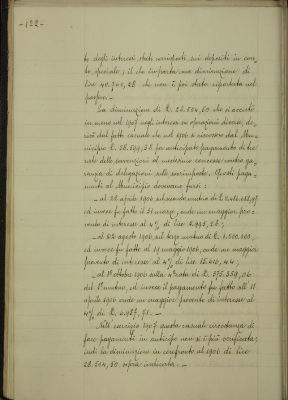 -122-
to degli interessi stati corrisposti sui depositi in con-
to speciale; il che importa una diminuzione di
lire 40.700,28 che non è poi stata riportata nel
La diminuzione di L. 28.504,50 che si accerta
in meno nel 1907 negli interessi su operazioni diverse, de-
rivò dal fatto casuale che nel 1906 si riscosse dal Muni-
cipio L. per anticipato pagamento di
delle sovvenzioni al medesimo concesse contro ga-
ranzia di delegazioni sulle sovrimposte. Questi paga-
menti al Municipio dovevano farsi:
- al 28 aprile 1906 sul secondo mutuo di L.
ed invece fu fatto il 31 marzo, onde un maggior pro-
vento di interessi al 4% di lire
- al 28 agosto 1906 sul terzo mutuo di L. 1.500.000,
ed invece fu fatto al 19 maggio 1906, onde un maggior
provento di interessi al 4% di lire 15.410,44;
- al 1° ottobre 1906 sulla rata di L. 375.250,04
del 1° mutuo, ed invece il pagamento fu fatto all' 11
aprile 1906 onde un maggior provento di interessi al
4% di L. 6.987,71.-
Nell' esercizio 1907 questa casuale circostanza di
fare pagamenti in anticipo non si è più verificata,
indi la diminuzione in confronto al 1906 di lire
28.504,50 sopra indicata.-